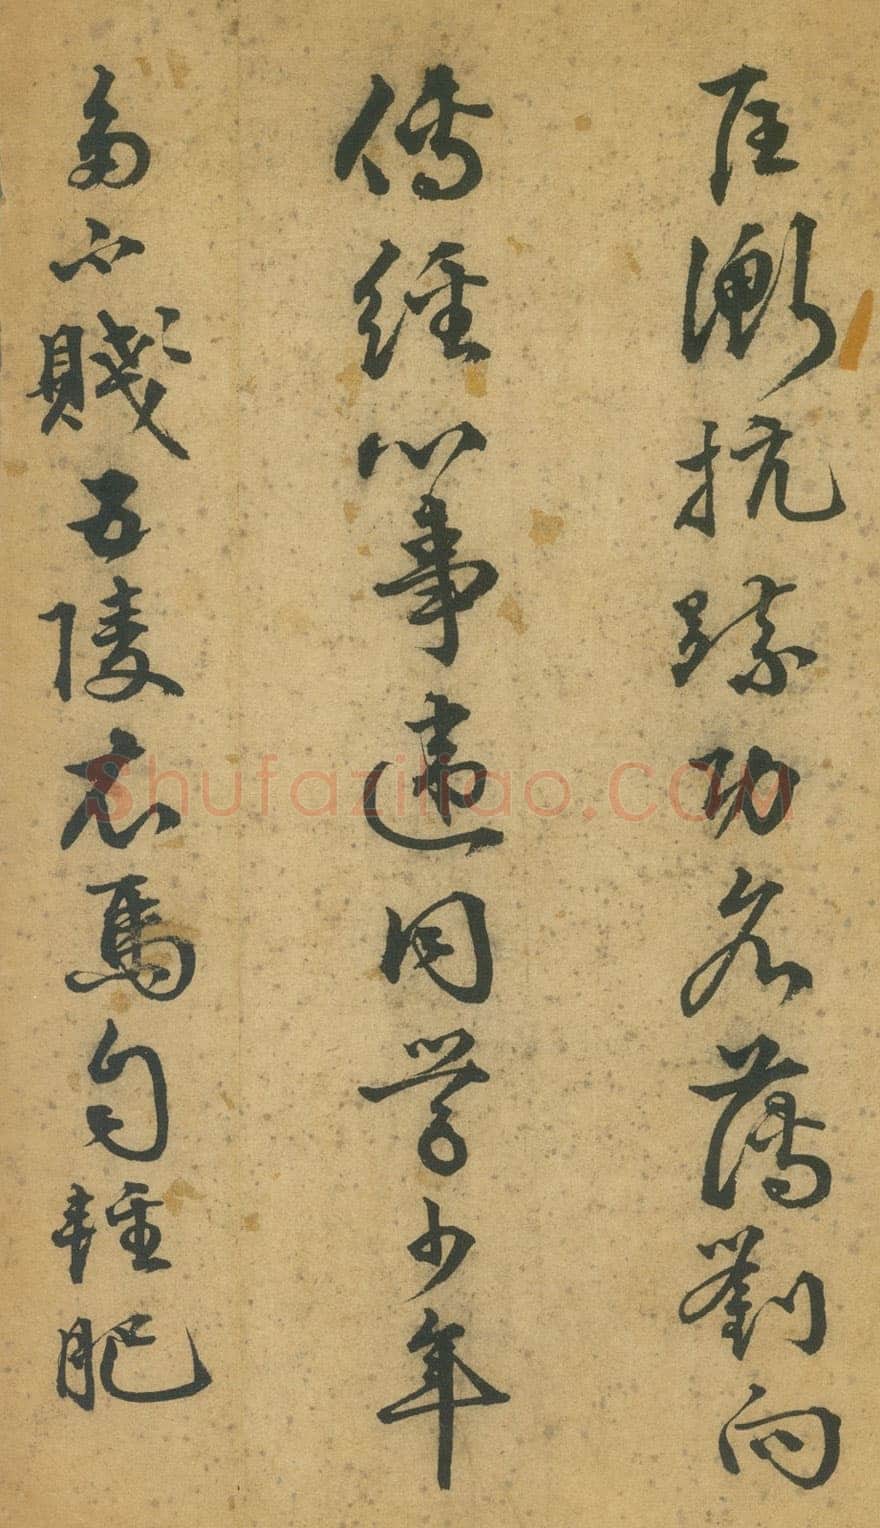 匡衡抗疏功名薄劉向
傳經心事違同學少年
多不賤五陵衣馬自輕肥
Shufaziliao.COM